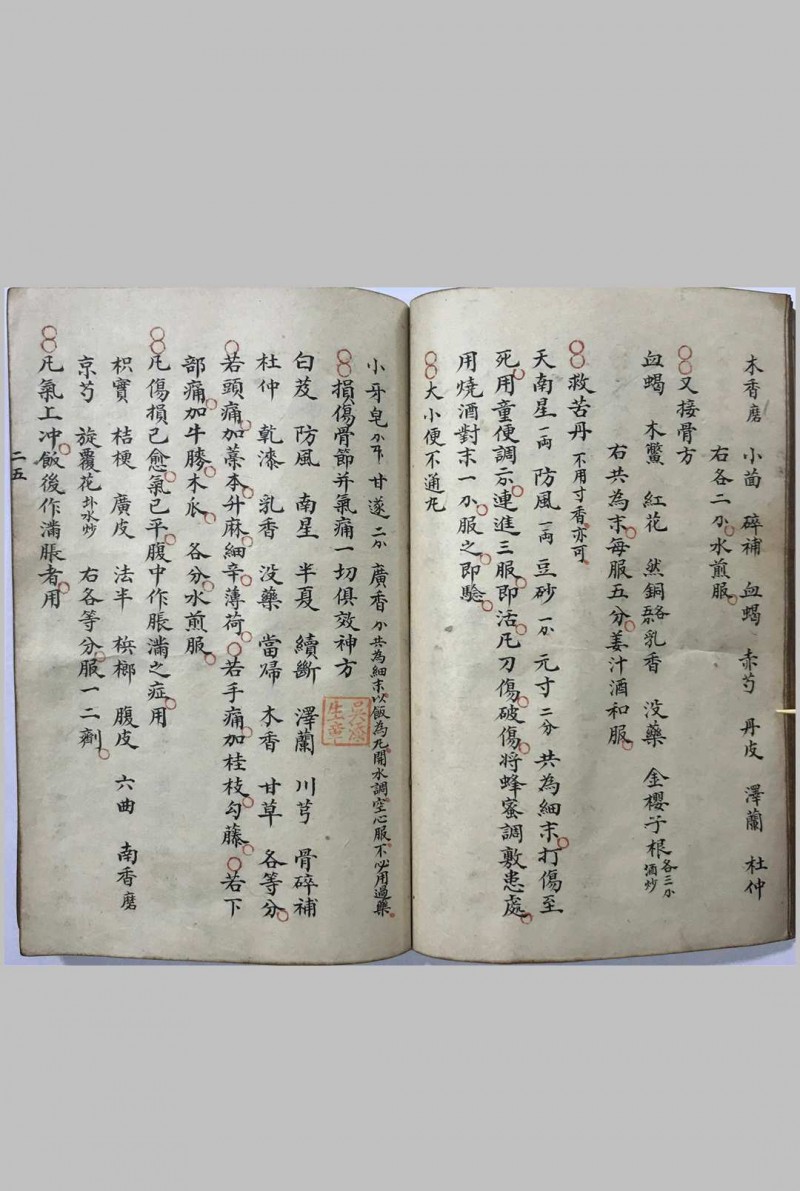 木香磨 小茴 碎補 血蝎 赤芍 丹皮 澤蘭 杜仲
右各二分水煎服
又接骨方
血蝎 木鱉 紅花 然銅 乳香 没藥 金櫻子根各三分酒炒
右共為末每服五分姜汁酒和服
救苦丹 不用寸香亦可
天南星一兩 防風一兩 豆砂一分 元寸二分 共為細末打傷至
死用童便調示連進三服即活凡刀傷破傷将蜂蜜調敷患處
用燒酒對末一分服之即驗
大小便不通丸
小牙皂 甘遂二分 廣香分共為細末以飯為丸開水調空心服不必用過藥
損傷骨節并氣痛一切俱效神方
白芨 防風 南星 半夏 續斷 澤蘭 川芎 骨碎補
杜仲 乾漆 乳香 没藥 當歸 木香 甘草 各等分
若頭痛加藁本升麻細辛薄荷若手痛加桂枝勾藤若下
部痛加牛膝木瓜 各分水煎服
凡傷損已愈氣已平腹中作脹滿之症用
枳實 桔梗 廣皮 法半 槟榔 腹皮 六曲 南香磨
京芍 旋覆花 右各等分服一二劑
凡氣上冲飯後作滿脹者用
二五